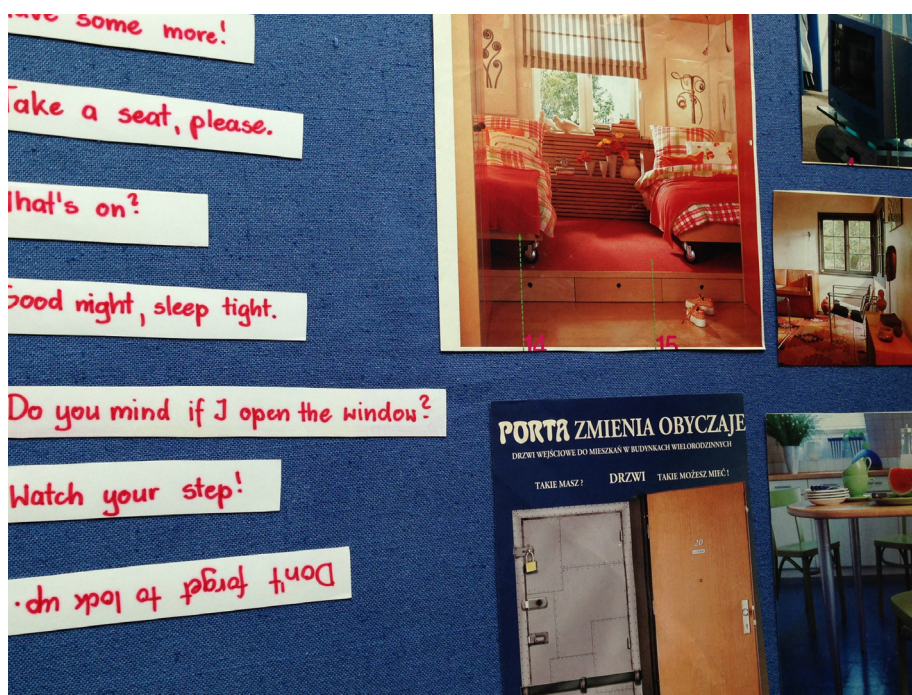 ave some more!
Take a seat, please.
What's on?
Good night, sleep tight.
Do you mind if I open the window?
Watch your step!
Don't forget to lock up.
14 15
PORTA ZMIENIA OBYCZAJE
DRZWI WEJŚCIOWE DO MIESZKAŃ W BUDYNKACH WIELORODZINNYCH
TAKIE MASZ? DRZWI TAKIE MOŻESZ MIEĆ!
20